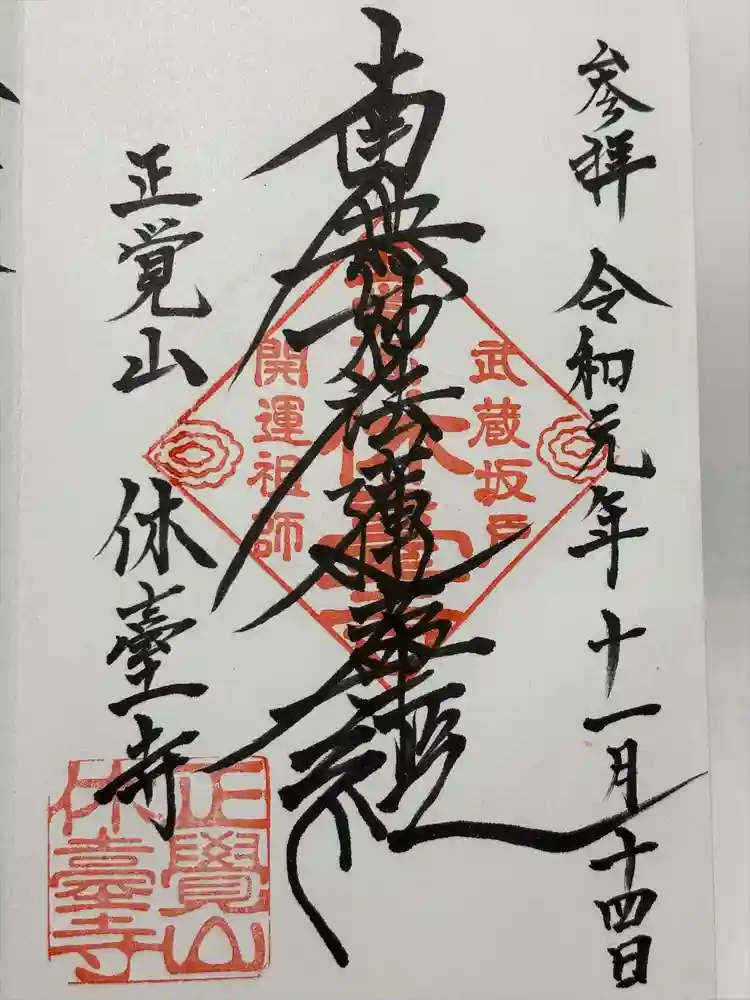 参拝 令和元年十一月十四日
南無妙法蓮華経
武蔵坂戸
開運祖師
正覚山 休臺寺
正覺山
休臺寺